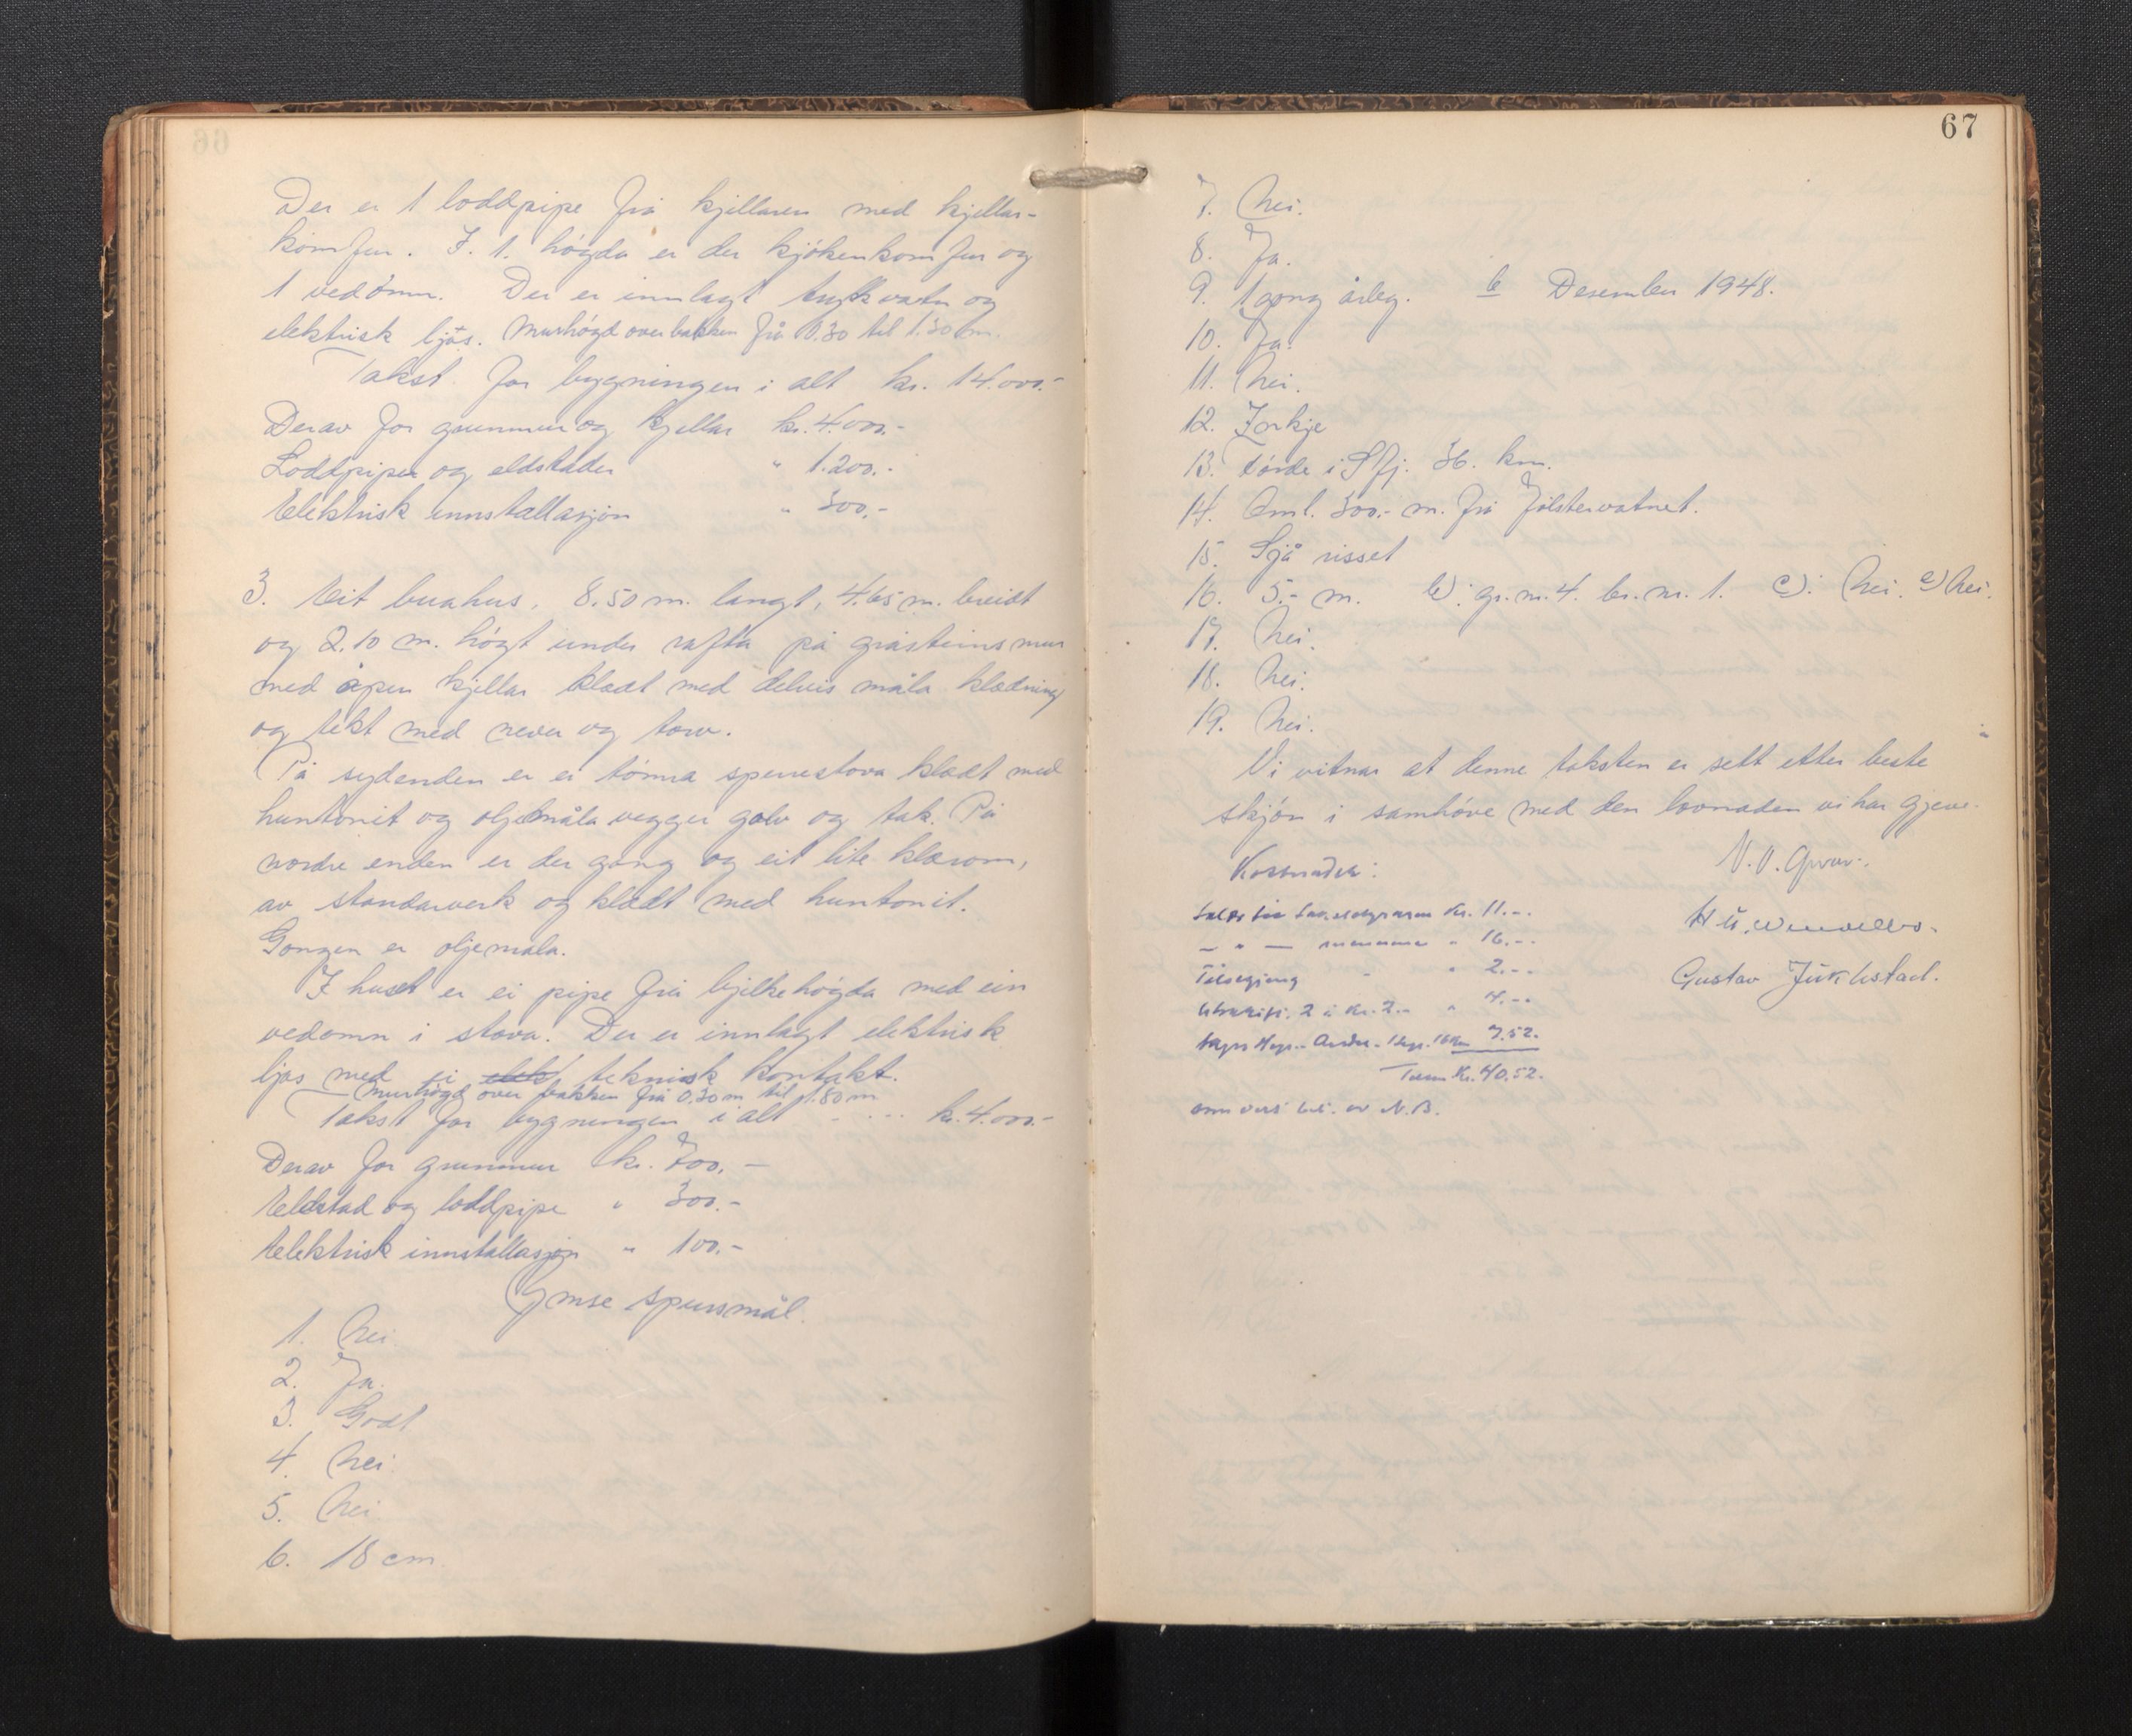 Der er 1 loddpipe frå kjellaren med kjellar-
komfur. I. 1. høgda er der kjøkenkomfur og
1 vedomn. Der er innlagt trykkvatn og
elektrisk ljos. Murhøgd over bakken frå 0.30 til 1.30 m.
Takst for bygningen i alt kr. 14.000.-
Derav for grunnmur og kjellar kr. 4.000.-
Loddpiper og eldstader " 1.200.-
Elektrisk innstallasjon " 300.-
3. Eit buahus, 8.50 m. langt, 4.65 m. breidt
og 2.10 m. høgt under rafta på gråsteinsmur
med åpen kjellar klædt med delvis måla klædning
og tekt med never og torv.
På sydenden er ei tømra sperrestova klædt med
huntonit og oljemåla vegger golv og tak. På
nordre enden er der gang og eit lite klærom,
av standarverk og klædt med huntonit.
Gongen er oljemåla.
I huset er ei pipe frå bjelkehøgda med ein
vedomn i stova. Der er innlagt elektrisk
ljos med ei elek teknisk kontakt.
Murhøgd over bakken frå 0,30 m til 1.80 m
Takst for bygningen i alt - - ... kr. 4.000.-
Derav for grunnmur kr. 700.-
Eldstad og loddpipe " 300.-
Elektrisk innstallasjon " 100.-
Ymse spursmål.
1. Nei
2. Ja.
3. Godt
4. Nei
5. Nei
6. 18 cm.
67
7. Nei.
8. Ja.
9. 1 gong årleg. b Desember 1948.
10. Ja.
11. Nei.
12. Inkje
13. Førde i Sfj. 36. km.
14. Oml. 300.- m. frå Jølstervatnet.
15. Sjå risset
16. 5.- m. b): gr. nr. 4. br. nr. 1. c): Nei. e) Nei.
17. Nei.
18. Nei.
19. Nei.
Vi vitnar at denne taksten er sett etter beste
skjøn i samhøve med den lovnaden vi har gjeve.
Kostnader:
Kr. 11.-.
- " - " 16.-.
Tilsegjing - " 2.-.
Utskrift. 2 à Kr. 2.- " 4.-.
7.52.
Kr. 40.52.
N.B.
Gustav